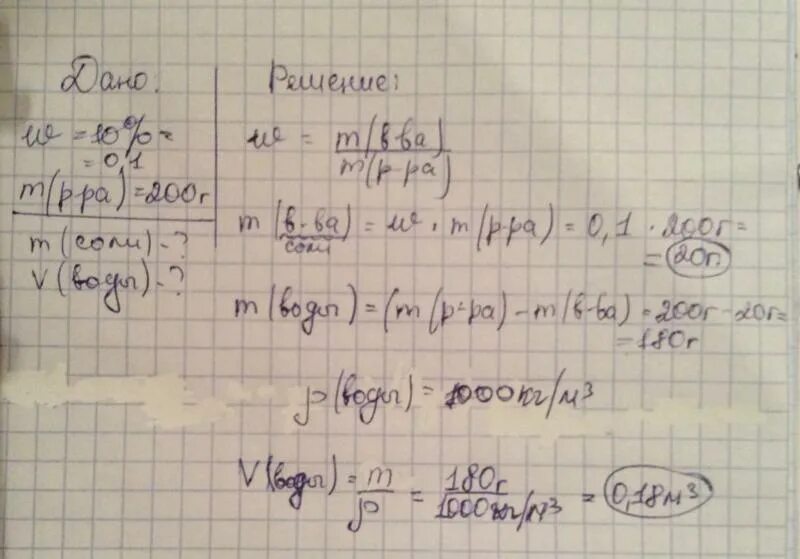 Дано:
w = 10% =
= 0,1
m(р-ра) = 200г
m(соли) - ?
V(воды) - ?
Решение:
w = m(в-ва)
m(р-ра)
m(в-ва) = w · m(р-ра) = 0,1 · 200г =
соли
= 20г.
m(воды) = (m(р-ра) - m(в-ва) = 200г - 20г =
= 180г
ρ(воды) = 1000кг/м³
V(воды) = m = 180г = 0,18м³
ρ 1000кг/м³